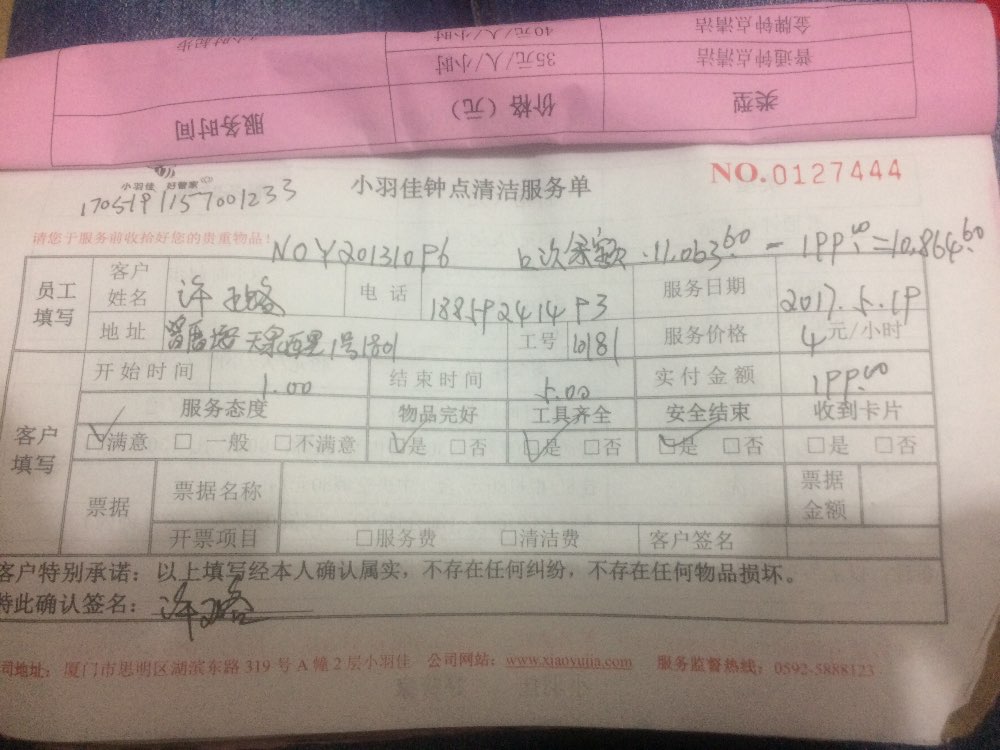 金牌钟点清洁 40元/人/小时
普通钟点清洁 35元/人/小时
类型 价格（元） 服务时间
小羽佳 好管家
小羽佳钟点清洁服务单 NO.0127444
1705191157001233
请您于服务前收拾好您的贵重物品!
NOY20131096 余额:11,063.60 - 199.00 = 10,864.60
员工填写 客户姓名 许 电话 18859241493 服务日期 2017.5.19
地址 天泉西里1号1801 工号 10181 服务价格 4元/小时
开始时间 1.00 结束时间 5.00 实付金额 199.00
客户填写 服务态度 物品完好 工具齐全 安全结束 收到卡片
☑满意 □一般 □不满意 ☑是 □否 ☑是 □否 ☑是 □否 □是 □否
票据 票据名称 票据金额
开票项目 □服务费 □清洁费 客户签名
客户特别承诺：以上填写经本人确认属实，不存在任何纠纷，不存在任何物品损坏。
特此确认签名：许
司地址：厦门市思明区湖滨东路319号A幢2层小羽佳 公司网站：www.xiaoyujia.com 服务监督热线：0592-5888123